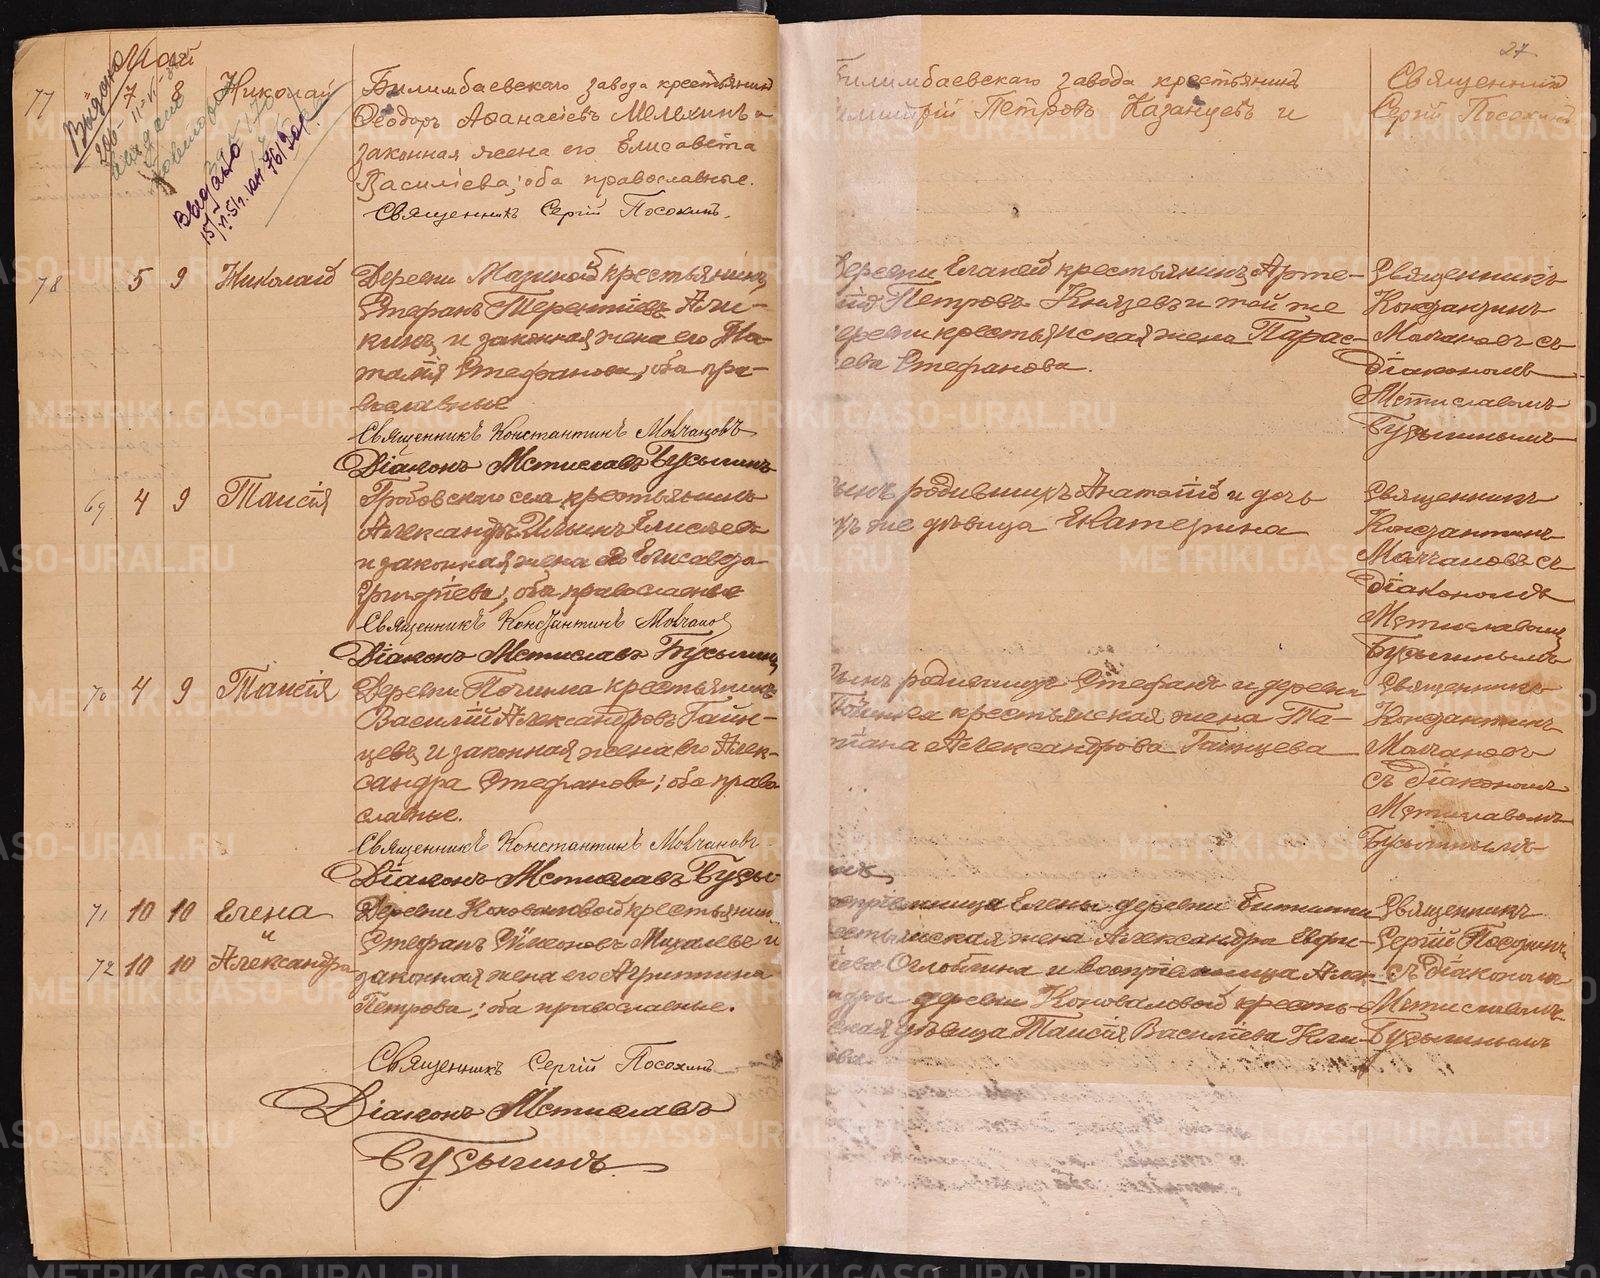 Май
27
77
7
8
Николай
Билимбаевскаго завода крестьянинъ
Ѳеодоръ Аѳанасіевъ Мелехинъ и
законная жена его Елисавета
Василіева; оба православные.
Священникъ Сергій Посохинъ.
Выдано
Выдано
Билимбаевскаго завода крестьянинъ
Димитрій Петровъ Казанцевъ и
Священникъ
Сергій Посохинъ
78
5
9
Николай
Деревни Мазиной крестьянинъ
Стефанъ Терентіевъ Али-
кинъ и законная жена его На-
талія Стефанова; оба пра-
вославные
Священникъ Константинъ Молчановъ
Діаконъ Мстиславъ Бусыгинъ
деревни крестьянинъ Арте-
мій Петровъ Князевъ и той же
деревни крестьянская жена Парас-
кева Стефанова.
Священникъ
Константинъ
Молчановъ съ
діакономъ
Мстиславомъ
Бусыгинымъ
69
4
9
Таисія
Гробовскаго села крестьянинъ
Александръ Ильинъ Елисѣевъ
и законная жена его Елисавета
Григоріева; оба православные
Священникъ Константинъ Молчановъ
Діаконъ Мстиславъ Бусыгинъ
сынъ родившихъ Анатолій и дочь
ихъ же дѣвица Екатерина
Священникъ
Константинъ
Молчановъ съ
діакономъ
Мстиславомъ
Бусыгинымъ
70
4
9
Таисія
Деревни Починка крестьянинъ
Василій Александровъ Гаин-
цевъ и законная жена его Алек-
сандра Стефанова; оба право-
славные.
Священникъ Константинъ Молчановъ
Діаконъ Мстиславъ Бусы-
гинъ
сынъ родившихъ Стефанъ и деревни
Починка крестьянская жена Та-
тіана Александрова Гаинцева
Священникъ
Константинъ
Молчановъ
съ діакономъ
Мстиславомъ
Бусыгинымъ
71
10
10
Елена
и
72
10
10
Александра
Деревни Коноваловой крестьянинъ
Стефанъ Михалевъ и
законная жена его Агриппина
Петрова; оба православные.
Священникъ Сергій Посохинъ
Діаконъ Мстиславъ
Бусыгинъ
воспріемница Елены деревни Битимки
крестьянская жена Александра Евфи-
міева Оглоблина и воспріемница Алек-
сандры деревни Коноваловой кресть-
янская дѣвица Таисія Василіева
Священникъ
Сергій Посохинъ
съ діакономъ
Мстиславомъ
Бусыгинымъ
METRIKI.GASO-URAL.RU